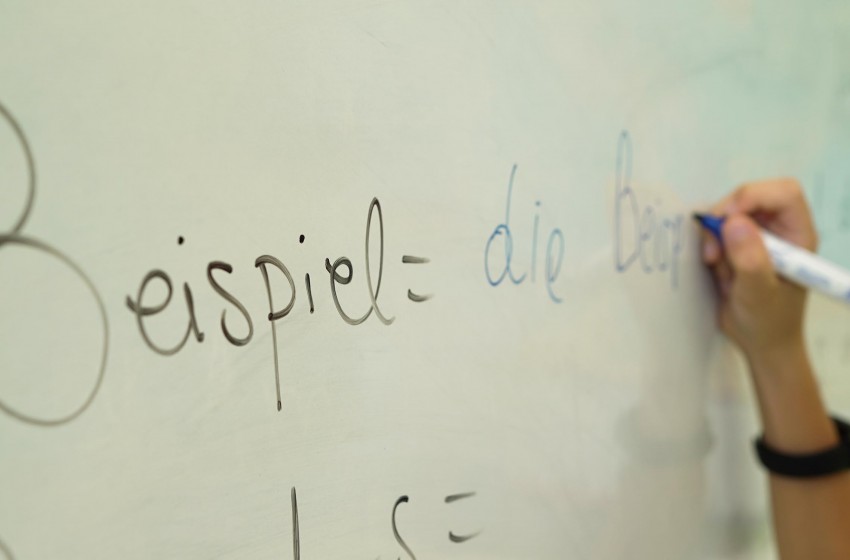 Beispiel = die Beisp